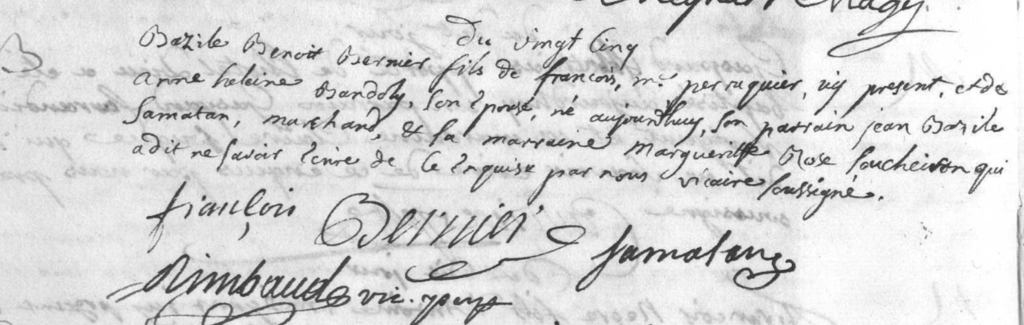 Du vingt Cinq
Bazile Benoit Bernier fils de francois, me. perruquier, icy present, et de
anne helaine Bandoly, son epouse, né aujourdhuy, son parrain jean Bazile
Samatan, marchand, & la marraine Margueritte Rose soucheiron qui
a dit ne savoir ecrire de ce enquise par nous vicaire soussigné.
francois Bernier
Samatan
Rimbaud vic.